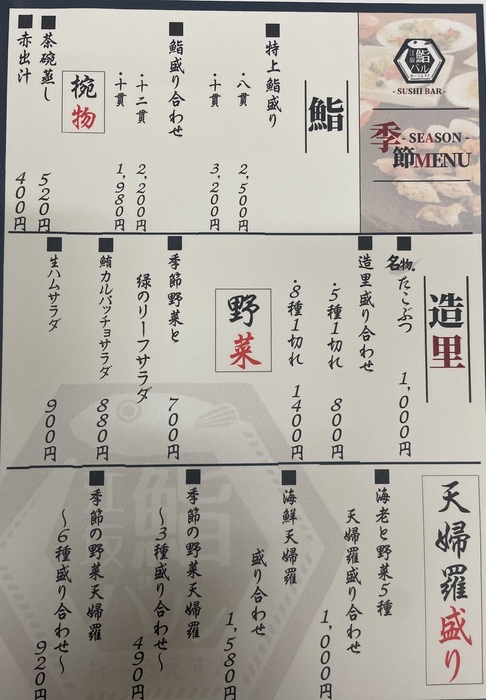 鮨
バル
- SUSHI BAR -
季節
- SEASON -
MENU
鮨
■特上鮨盛り
・八貫 2,500円
・十貫 3,200円
■鮨盛り合わせ
・十二貫 2,200円
・十貫 1,980円
椀物
■茶碗蒸し 520円
■赤出汁 400円
造里
■名物。たこぶつ 1,000円
■造里盛り合わせ
・5種1切れ 800円
・8種1切れ 1400円
野菜
■季節野菜と
緑のリーフサラダ 700円
■鮪カルパッチョサラダ 880円
■生ハムサラダ 900円
天婦羅盛り
■海老と野菜5種
天婦羅盛り合わせ 1,000円
■海鮮天婦羅
盛り合わせ 1,580円
■季節の野菜天婦羅
～3種盛り合わせ～ 490円
■季節の野菜天婦羅
～6種盛り合わせ～ 920円